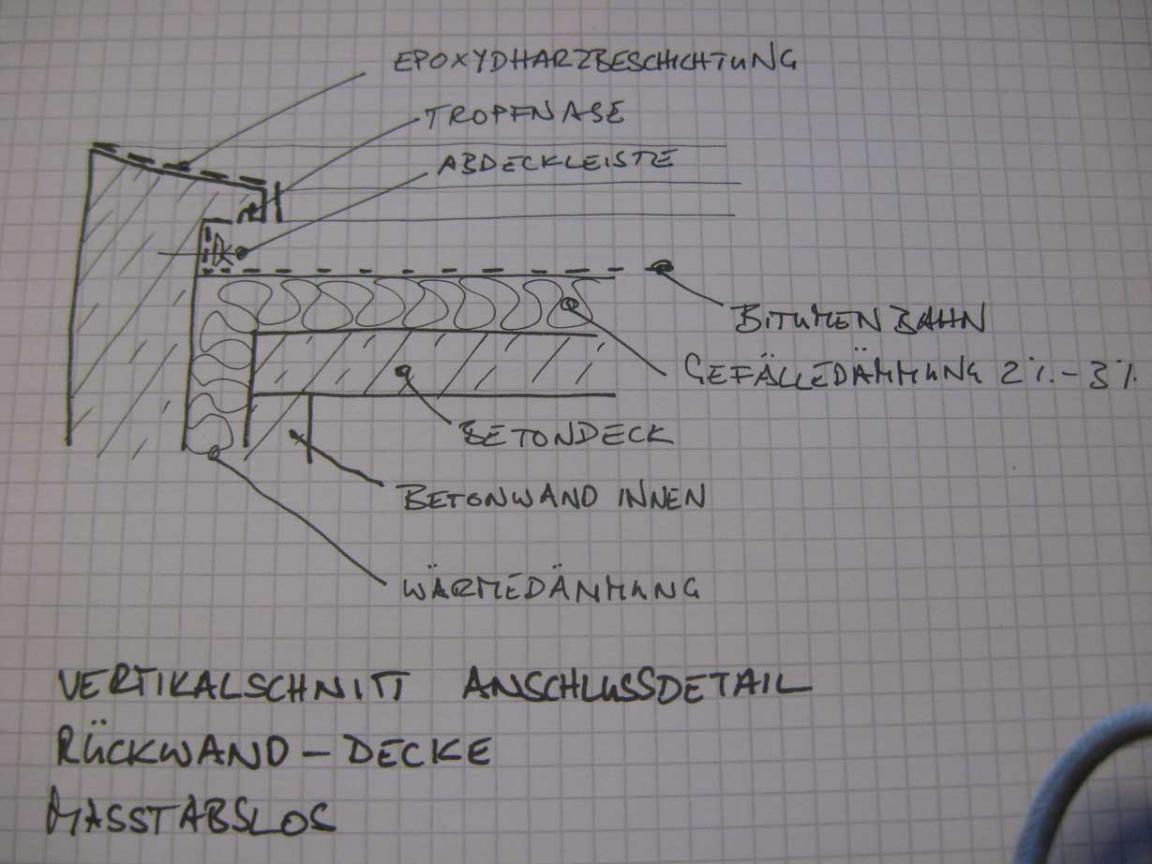 EPOXYDHARZBESCHICHTUNG
TROPFNASE
ABDECKLEISTE
BITUMEN BAHN
GEFÄLLEDÄMMUNG 2%-3%
BETONDECK
BETONWAND INNEN
WÄRMEDÄMMUNG
VERTIKALSCHNITT ANSCHLUSSDETAIL
RÜCKWAND - DECKE
MASSTABSLOS